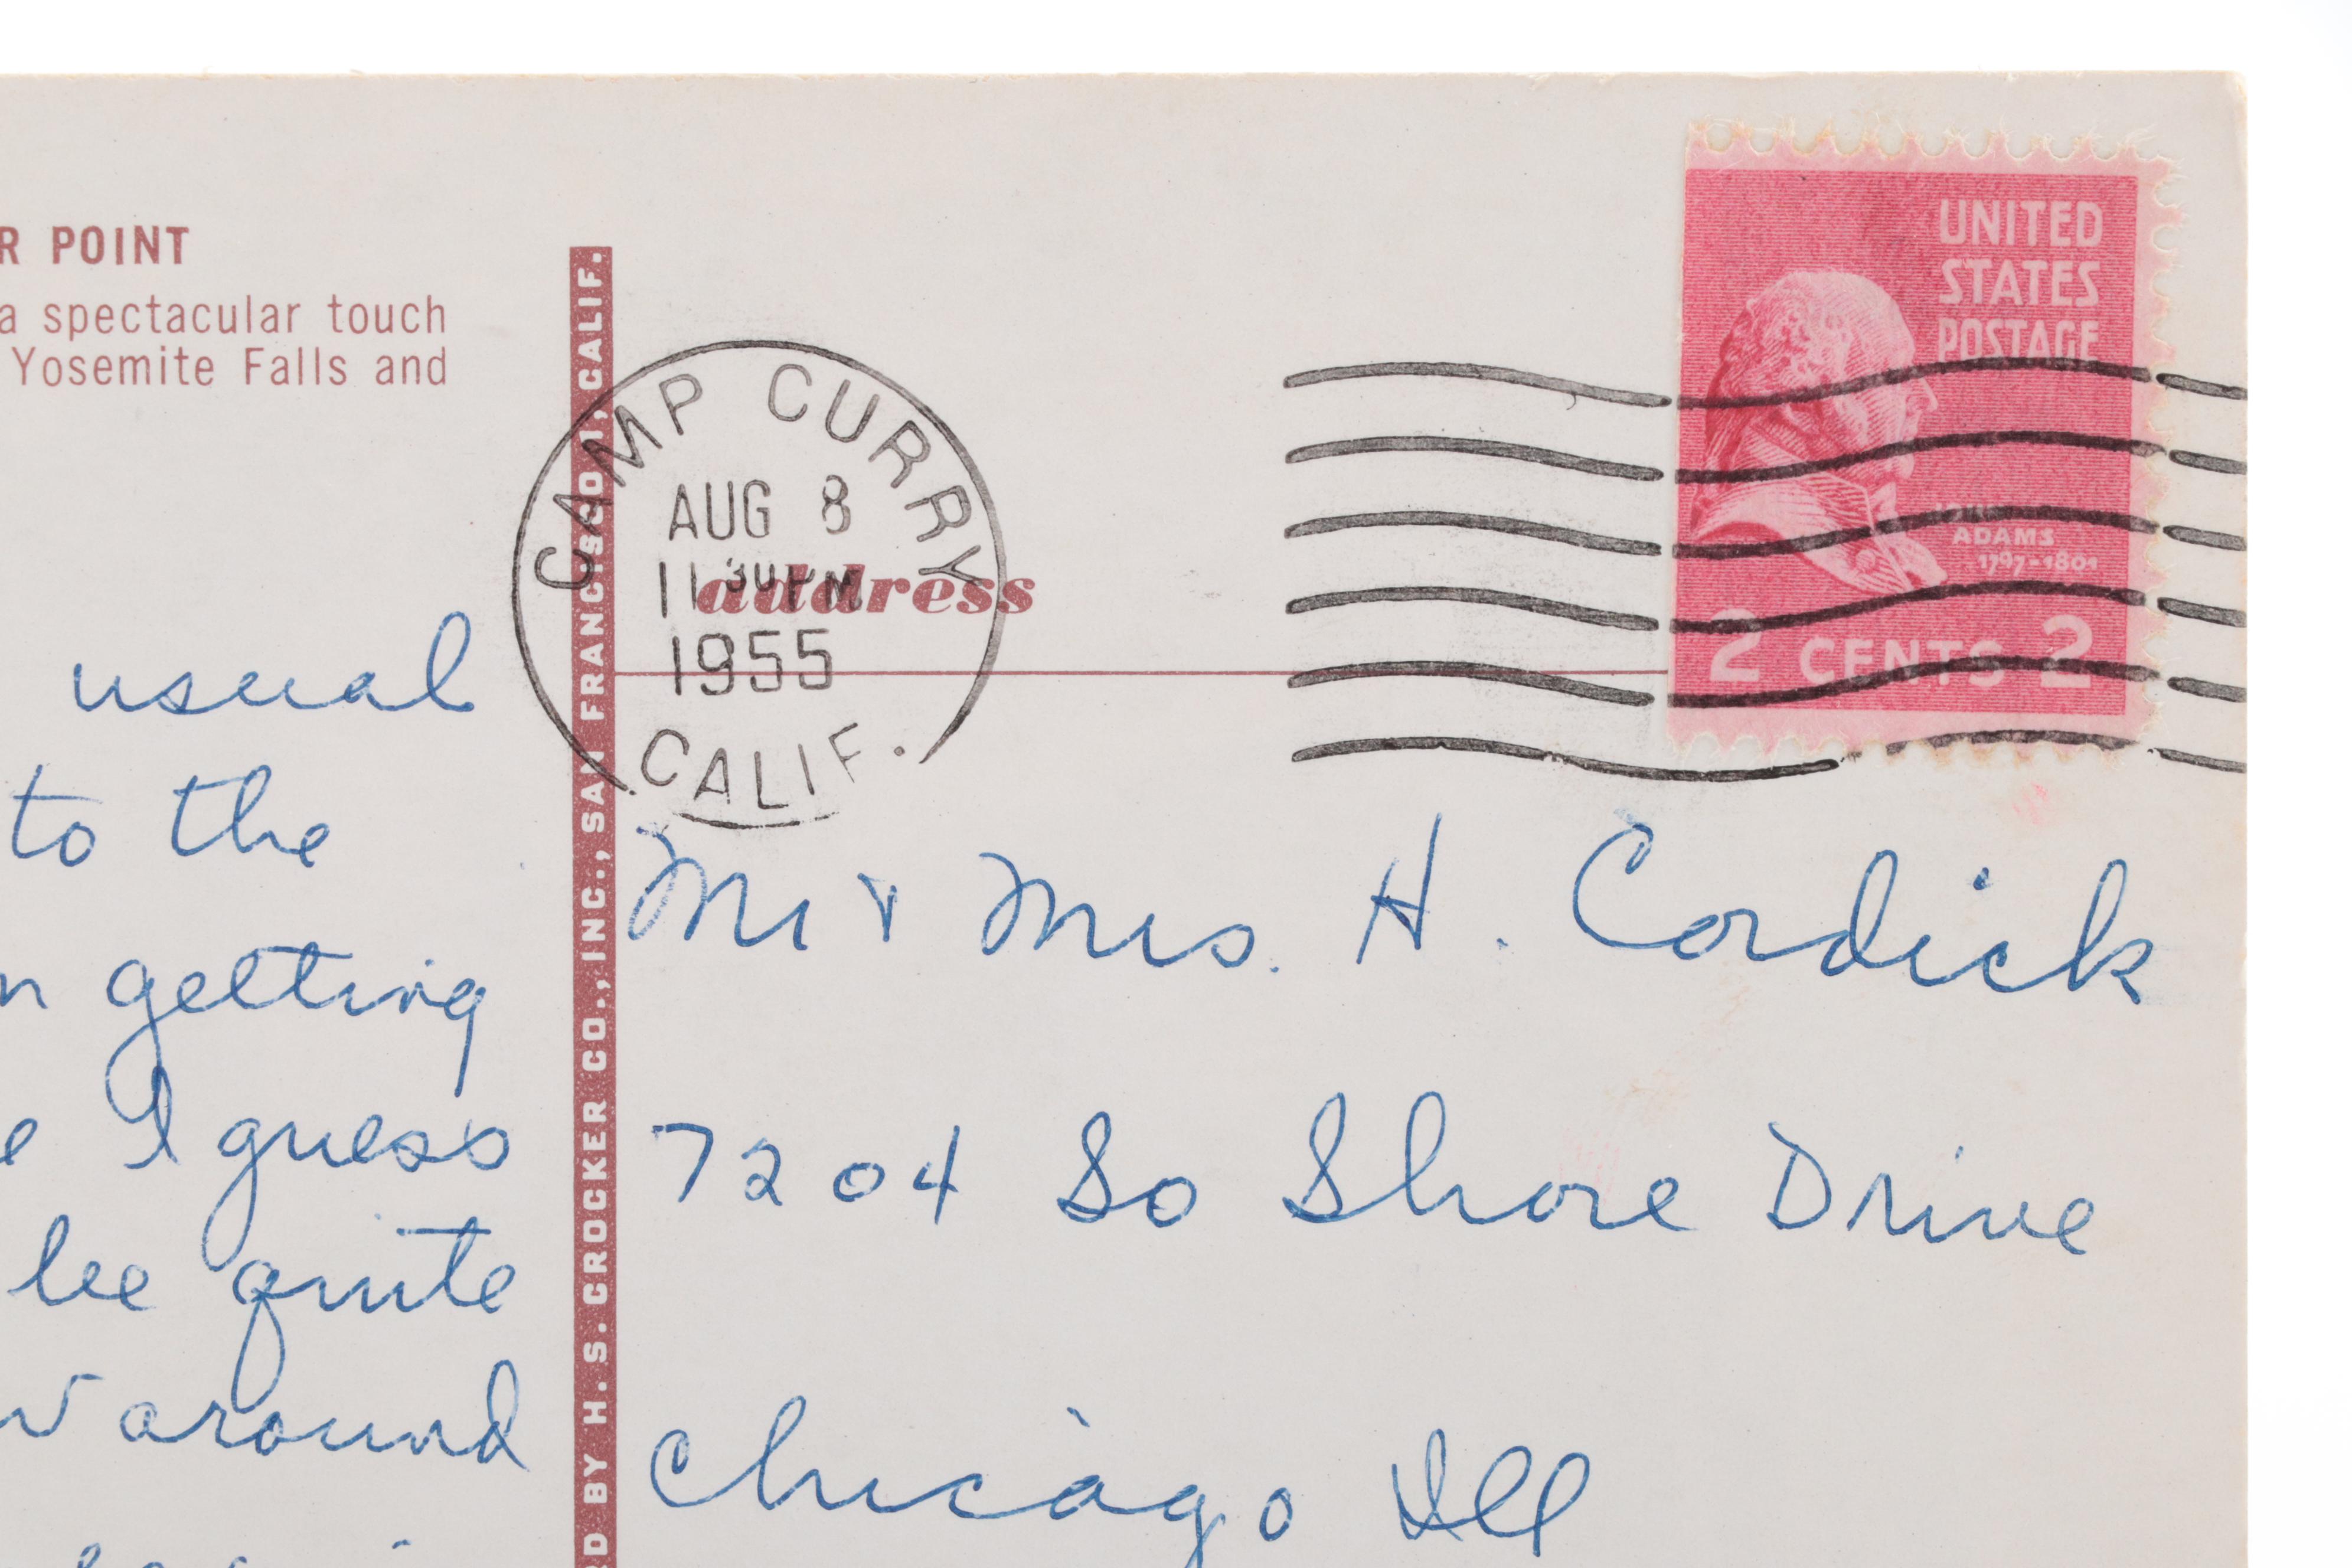 R POINT
a spectacular touch
Yosemite Falls and
usual
to the
n getting
e I guess
be quite
w around
RD BY H. S. CROCKER CO., INC., SAN FRANCISCO 1, CALIF.
CAMP CURRY
AUG 8
11 30 PM
1955
CALIF.
address
UNITED
STATES
POSTAGE
JOHN
ADAMS
1797-1801
2 CENTS 2
Mr & Mrs. H. Cordick
7204 So Shore Drive
Chicago Ill